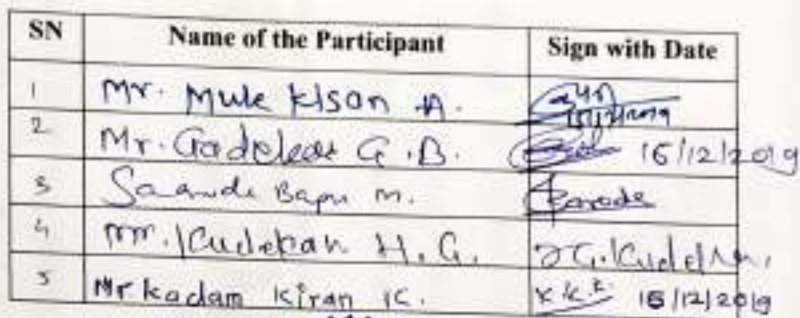 SN Name of the Participant Sign with Date
1 Mr. Mule Kisan A.
2 Mr. Gadekar G.B. 16/12/2019
3 Bapu M.
4 Mr. Kudekar H.G.
5 Mr. Kadam Kiran K. K.K.K. 16/12/2019